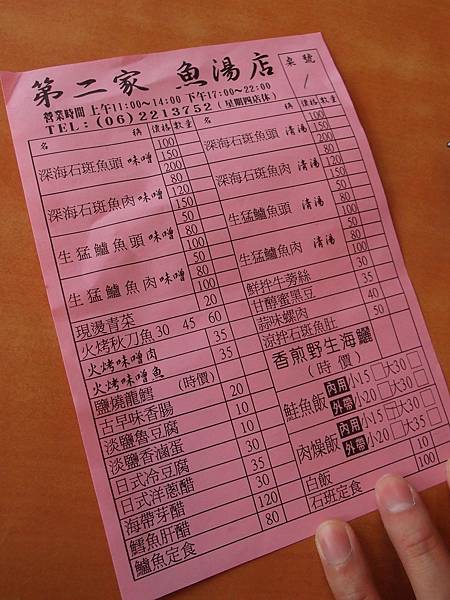 第二家 魚湯店
桌號
/
營業時間 上午11:00~14:00 下午17:00~22:00
TEL:(06)2213752 (星期四店休)
名 稱 價格 數量
深海石斑魚頭 味噌 100 150 200
深海石斑魚肉 味噌 80 120 150
生猛鱸魚頭 味噌 50 80 100
生猛鱸魚肉 味噌 50 80 100
現燙青菜 20
火烤秋刀魚 30 45 60
火烤味噌肉 35
火烤味噌魚 35
鹽燒龍鱈 (時價)
古早味香腸 20
淡鹽魯豆腐 10
淡鹽香滷蛋 10
日式冷豆腐 30
日式洋蔥醋 35
海帶芽醋 30
鱈魚肝醋 120
鱸魚定食 80
名 稱 價格 數量
深海石斑魚頭 清湯 100 150 200
深海石斑魚肉 清湯 80 120 150
生猛鱸魚頭 清湯 50 80 100
生猛鱸魚肉 清湯 50 80 100
鮮拌牛蒡絲 30
甘醇蜜黑豆 35
蒜味螺肉 40
涼拌石斑魚肚 50
香煎野生海鱺
(時價)
鮭魚飯 內用 小15□大30□
外帶 小20□大30□
肉燥飯 內用 小15□大30□
外帶 小20□大35□
白飯 10
石斑定食 100